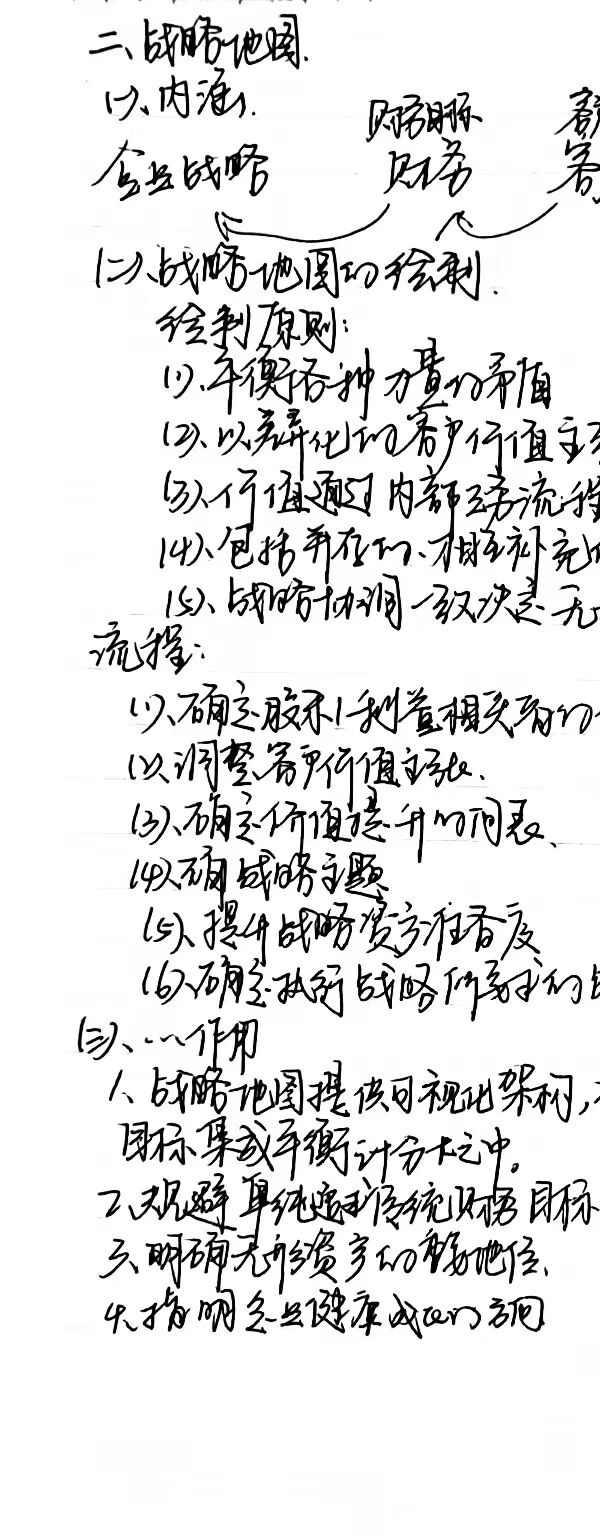 二、战略地图.
(一)、内涵.
财务目标 客
企业战略 财务 客
(二)、战略地图的绘制.
绘制原则:
(1)、平衡各种力量的矛盾
(2)、以差异化的客户价值主张
(3)、价值通过内部业务流程
(4)、包括并存的、相互补充的
(5)、战略协调一致决定无
流程:
(1)、确定股东/利益相关者的
(2)、调整客户价值主张.
(3)、确定价值提升时间表、
(4)、确战略主题
(5)、提升战略资产准备度
(6)、确定执行战略所需的
(三)、…作用
1、战略地图提供可视化架构,
目标集成平衡计分卡之中。
2、规避单纯追求传统财务目标
3、明确无形资产的重要地位、
4、指明企业健康成长的方向